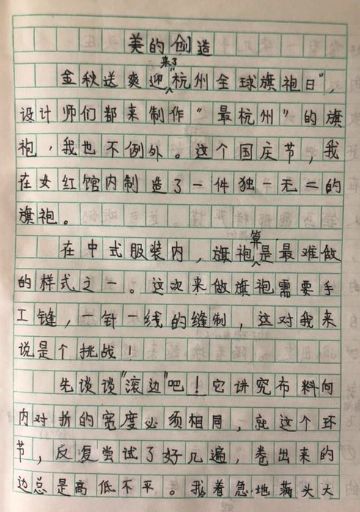 美的创造
金秋送爽迎来了"杭州全球旗袍日",
设计师们都来制作"最杭州"的旗
袍,我也不例外。这个国庆节,我
在女红馆内制造了一件独一无二的
旗袍。
在中式服装内,旗袍算是最难做
的样式之一。这次来做旗袍需要手
工缝,一针一线的缝制,这对我来
说是个挑战!
先谈谈"滚边"吧!它讲究布料向
内对折的宽度必须相同,就这个环
节,反复尝试了好几遍,卷出来的
边总是高低不平。我着急地满头大